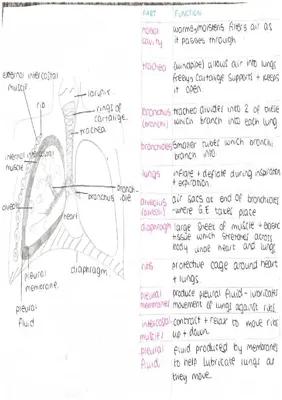 PART FUNCTION
nasal cavity
warms/moistens filters air as
it passes through.
trachea
(windpipe) allows air into lungs
keeps it open.
bronchus (bronchi)
trachea divides into 2 of these
which branch into each lung
bronchioles
Smaller tubes which bronchi
branch into.
lungs
inflate + deflate during inspiration
+ expiration.
alveolus (alveoli)
air sacs at end of bronchioles
-where G.E takes place
diaphragm
large sheet of muscle +
tissue which stretches across
body under heart and lungs
ribs
protective cage around heart
+ lungs.
pleural membranes
produce pleural fluid - lubricates
movement of lungs against ribs.
intercostal muscles
contract + relax to move ribs
up + down.
pleural fluid
fluid produced by membranes
to help lubricate lungs as
they move.
external intercostal
muscle
rib
larynx.
rings of
cartalige.
trachea
internal intercostal
muscle
alveoli
bronchus
heart
pleural
membrane.
diaphragm.
pleural
fluid